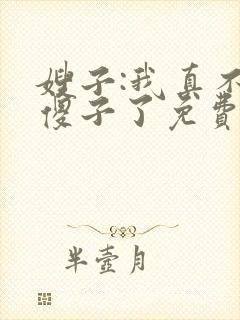 嫂子:我真不
傻子了免费
半壶月